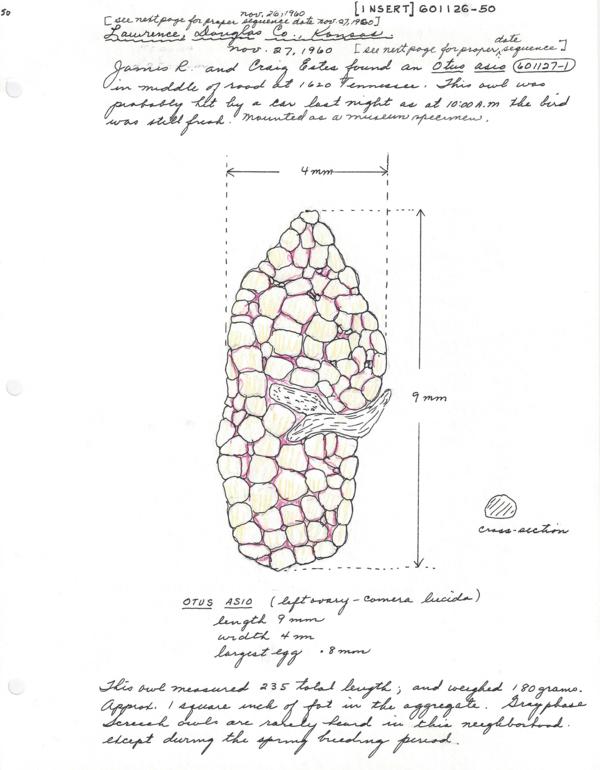 50
nov. 26, 1960 [INSERT] 601126-50
[see next page for proper sequence date nov. 27, 1960]
Lawrence, Douglas Co., Kansas.
nov. 27, 1960 [see next page for proper date sequence]
James R. and Craig Estes found an Otus asio (601127-1)
in middle of road at 1620 Tennessee. This owl was
probably hit by a car last night as at 10:00 A.M the bird
was still fresh. Mounted as a museum specimen.
4 mm
9 mm
cross-section
OTUS ASIO (left ovary - camera lucida)
length 9 mm
width 4 m
largest egg .8 mm
This owl measured 235 total length; and weighed 180 grams.
Approx. 1 square inch of fat in the aggregate. Gray phase
Screech owls are rarely heard in this neighborhood
except during the spring breeding period.